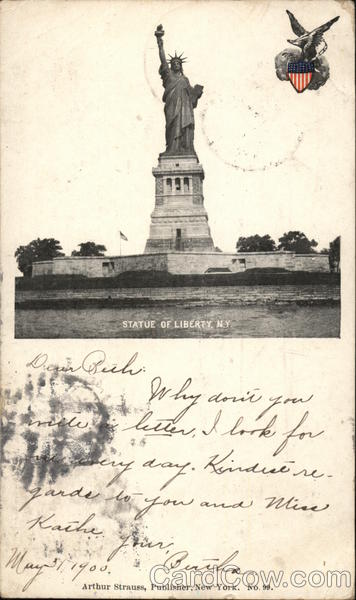 STATUE OF LIBERTY, N.Y.
Dear Beth:
Why don't you
write a letter, I look for
one every day. Kindest re-
gards to you and Miss
Kathe
your,
May 31, 1900. Bertha
Arthur Strauss, Publisher, New York. No. 99.
CardCow.com®